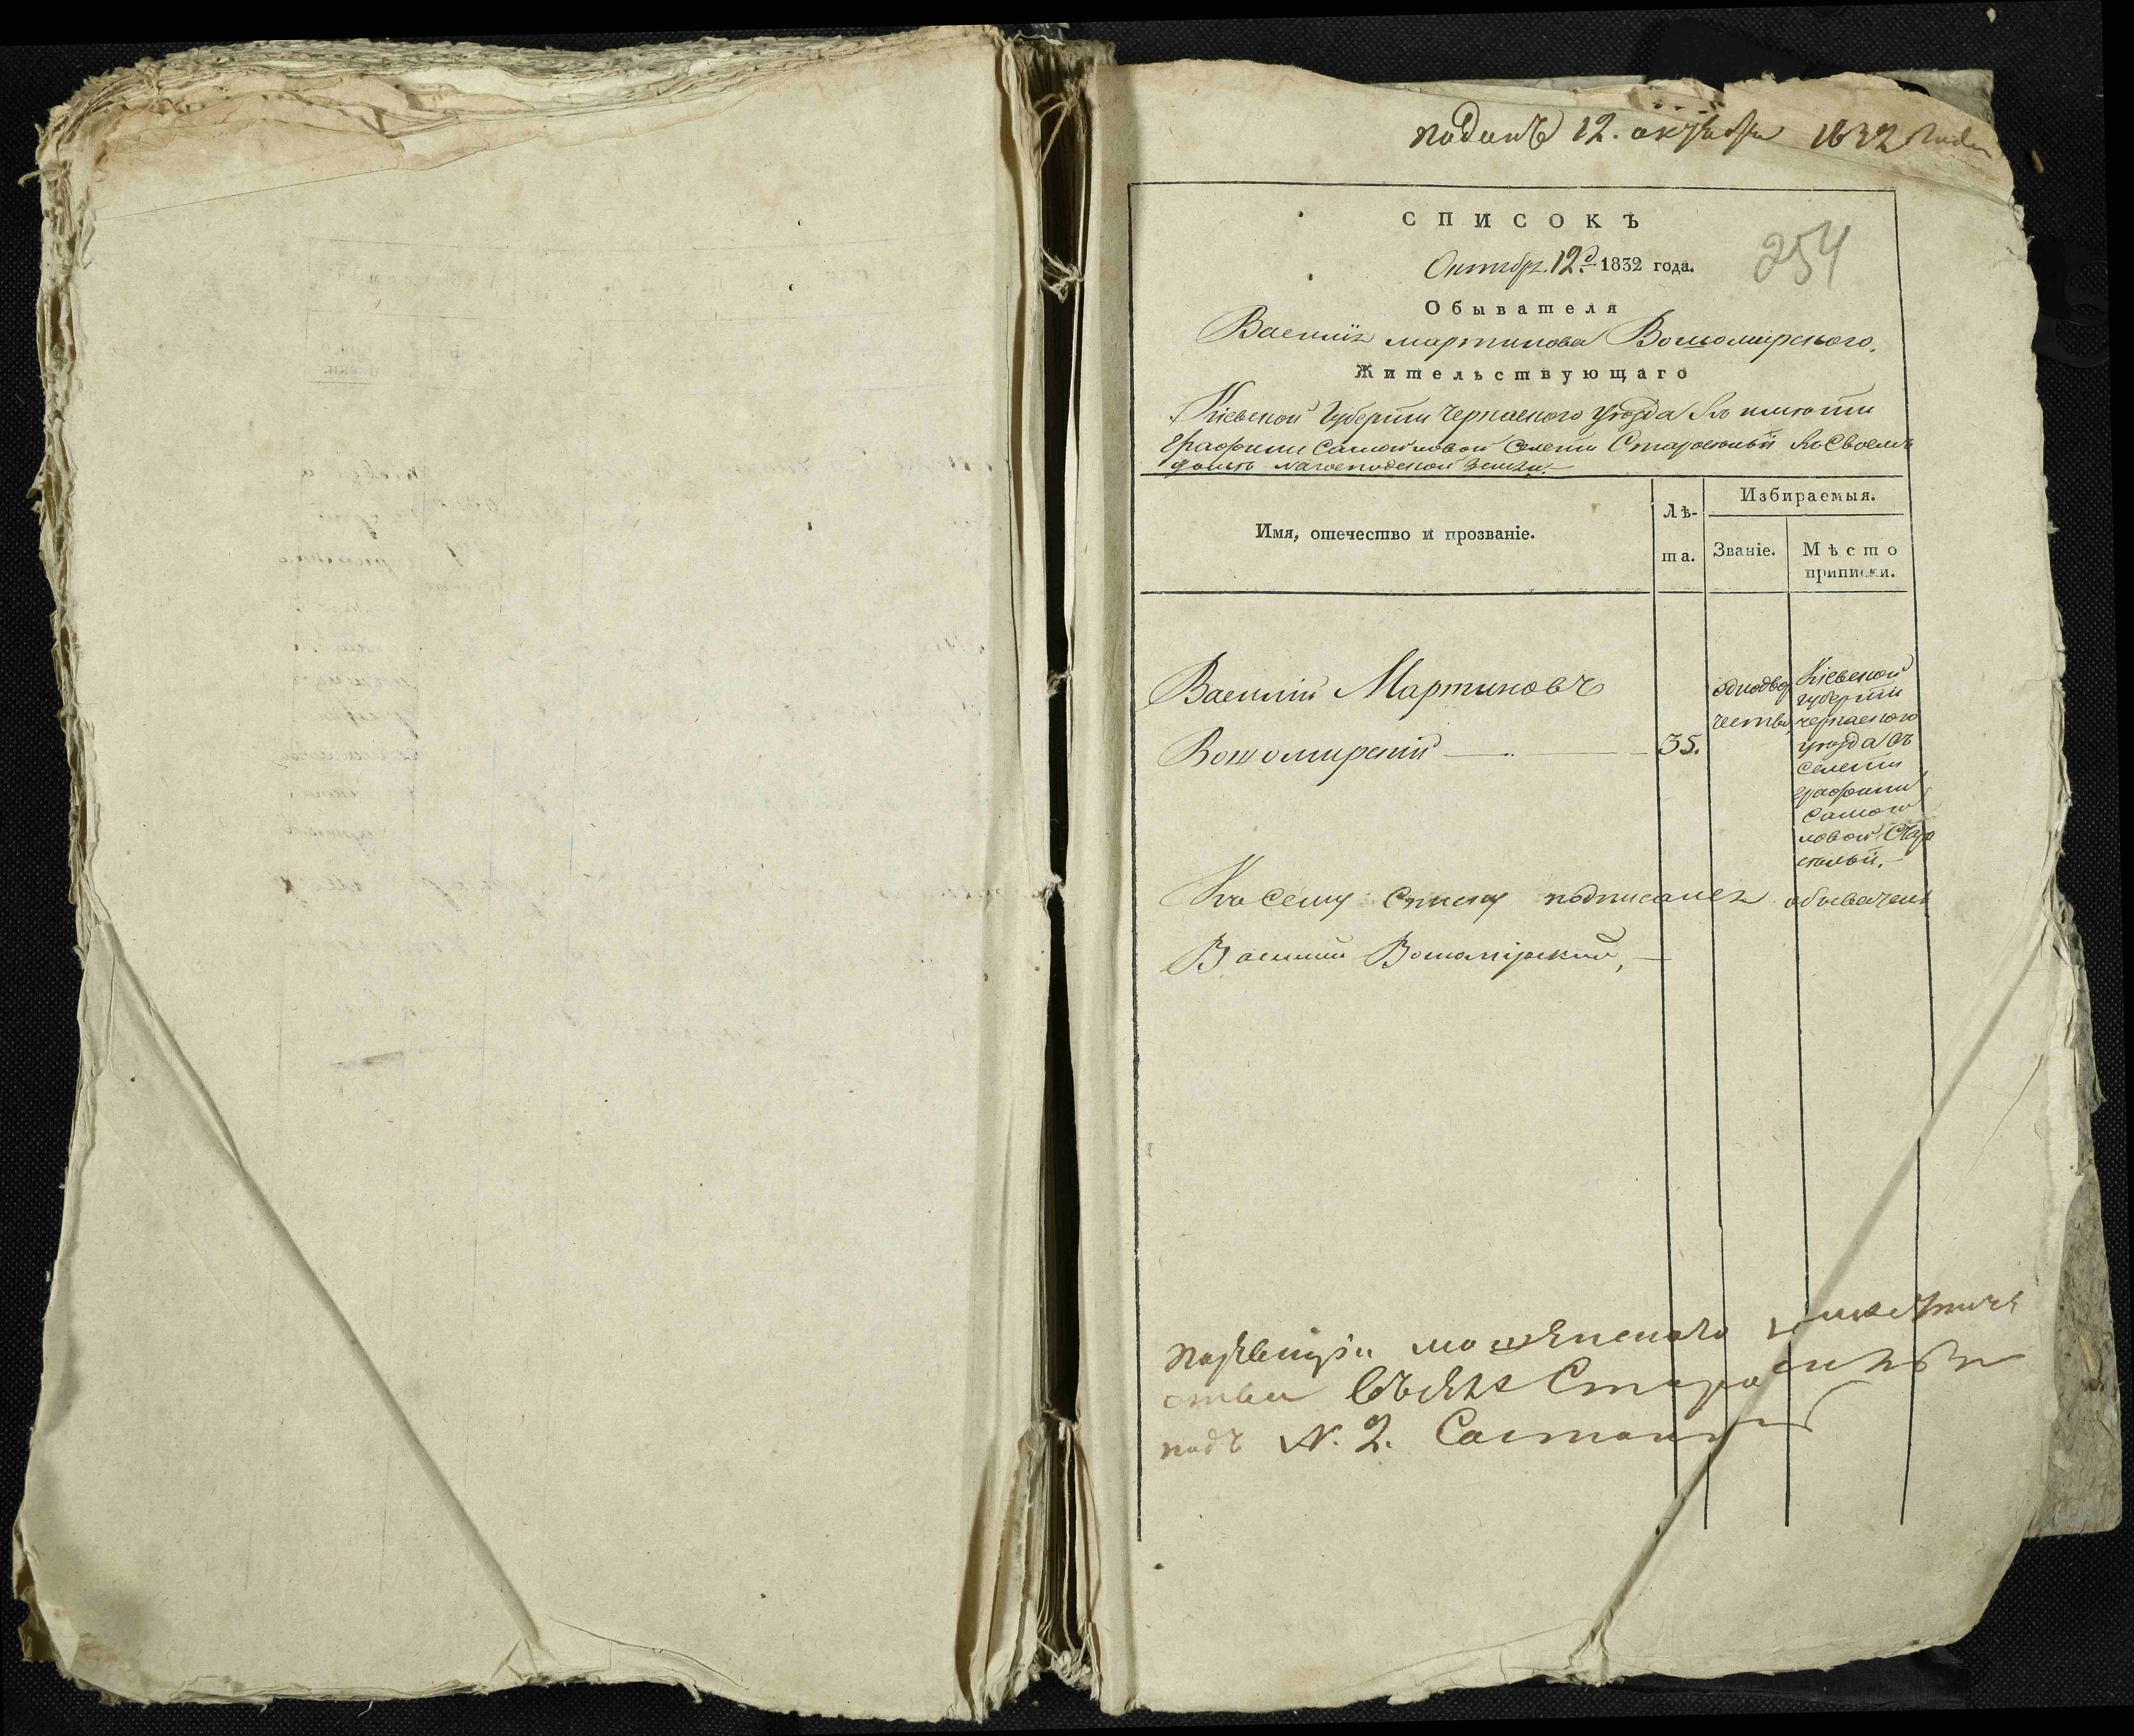 поданъ 12. октября 1832 года
СПИСОКЪ
254
Октябр. 12 д. 1832 года.
Обывателя
Василія Мартинова Вошомирского.
Жительствующаго
Кіевской Губерніи Черкаского уезда въ
Графини Самойловой Старосельи во своемъ
доме на господской земли.
Имя, отечество и прозваніе.
Лѣ-
та.
Избираемыя.
Званіе.
Мѣсто
приписки.
Василій Мартиновъ
Вошомирскій 35.
однодвор
чество,
Кіевской
губерніи
черкаского
уезда въ
селении
графини
Самой
ловой Старо
сельи.
Ко сему списку подписался обыватель
Василий Вошомірский,
староства въ селе Старосельи
подъ N. 2. Состоитъ